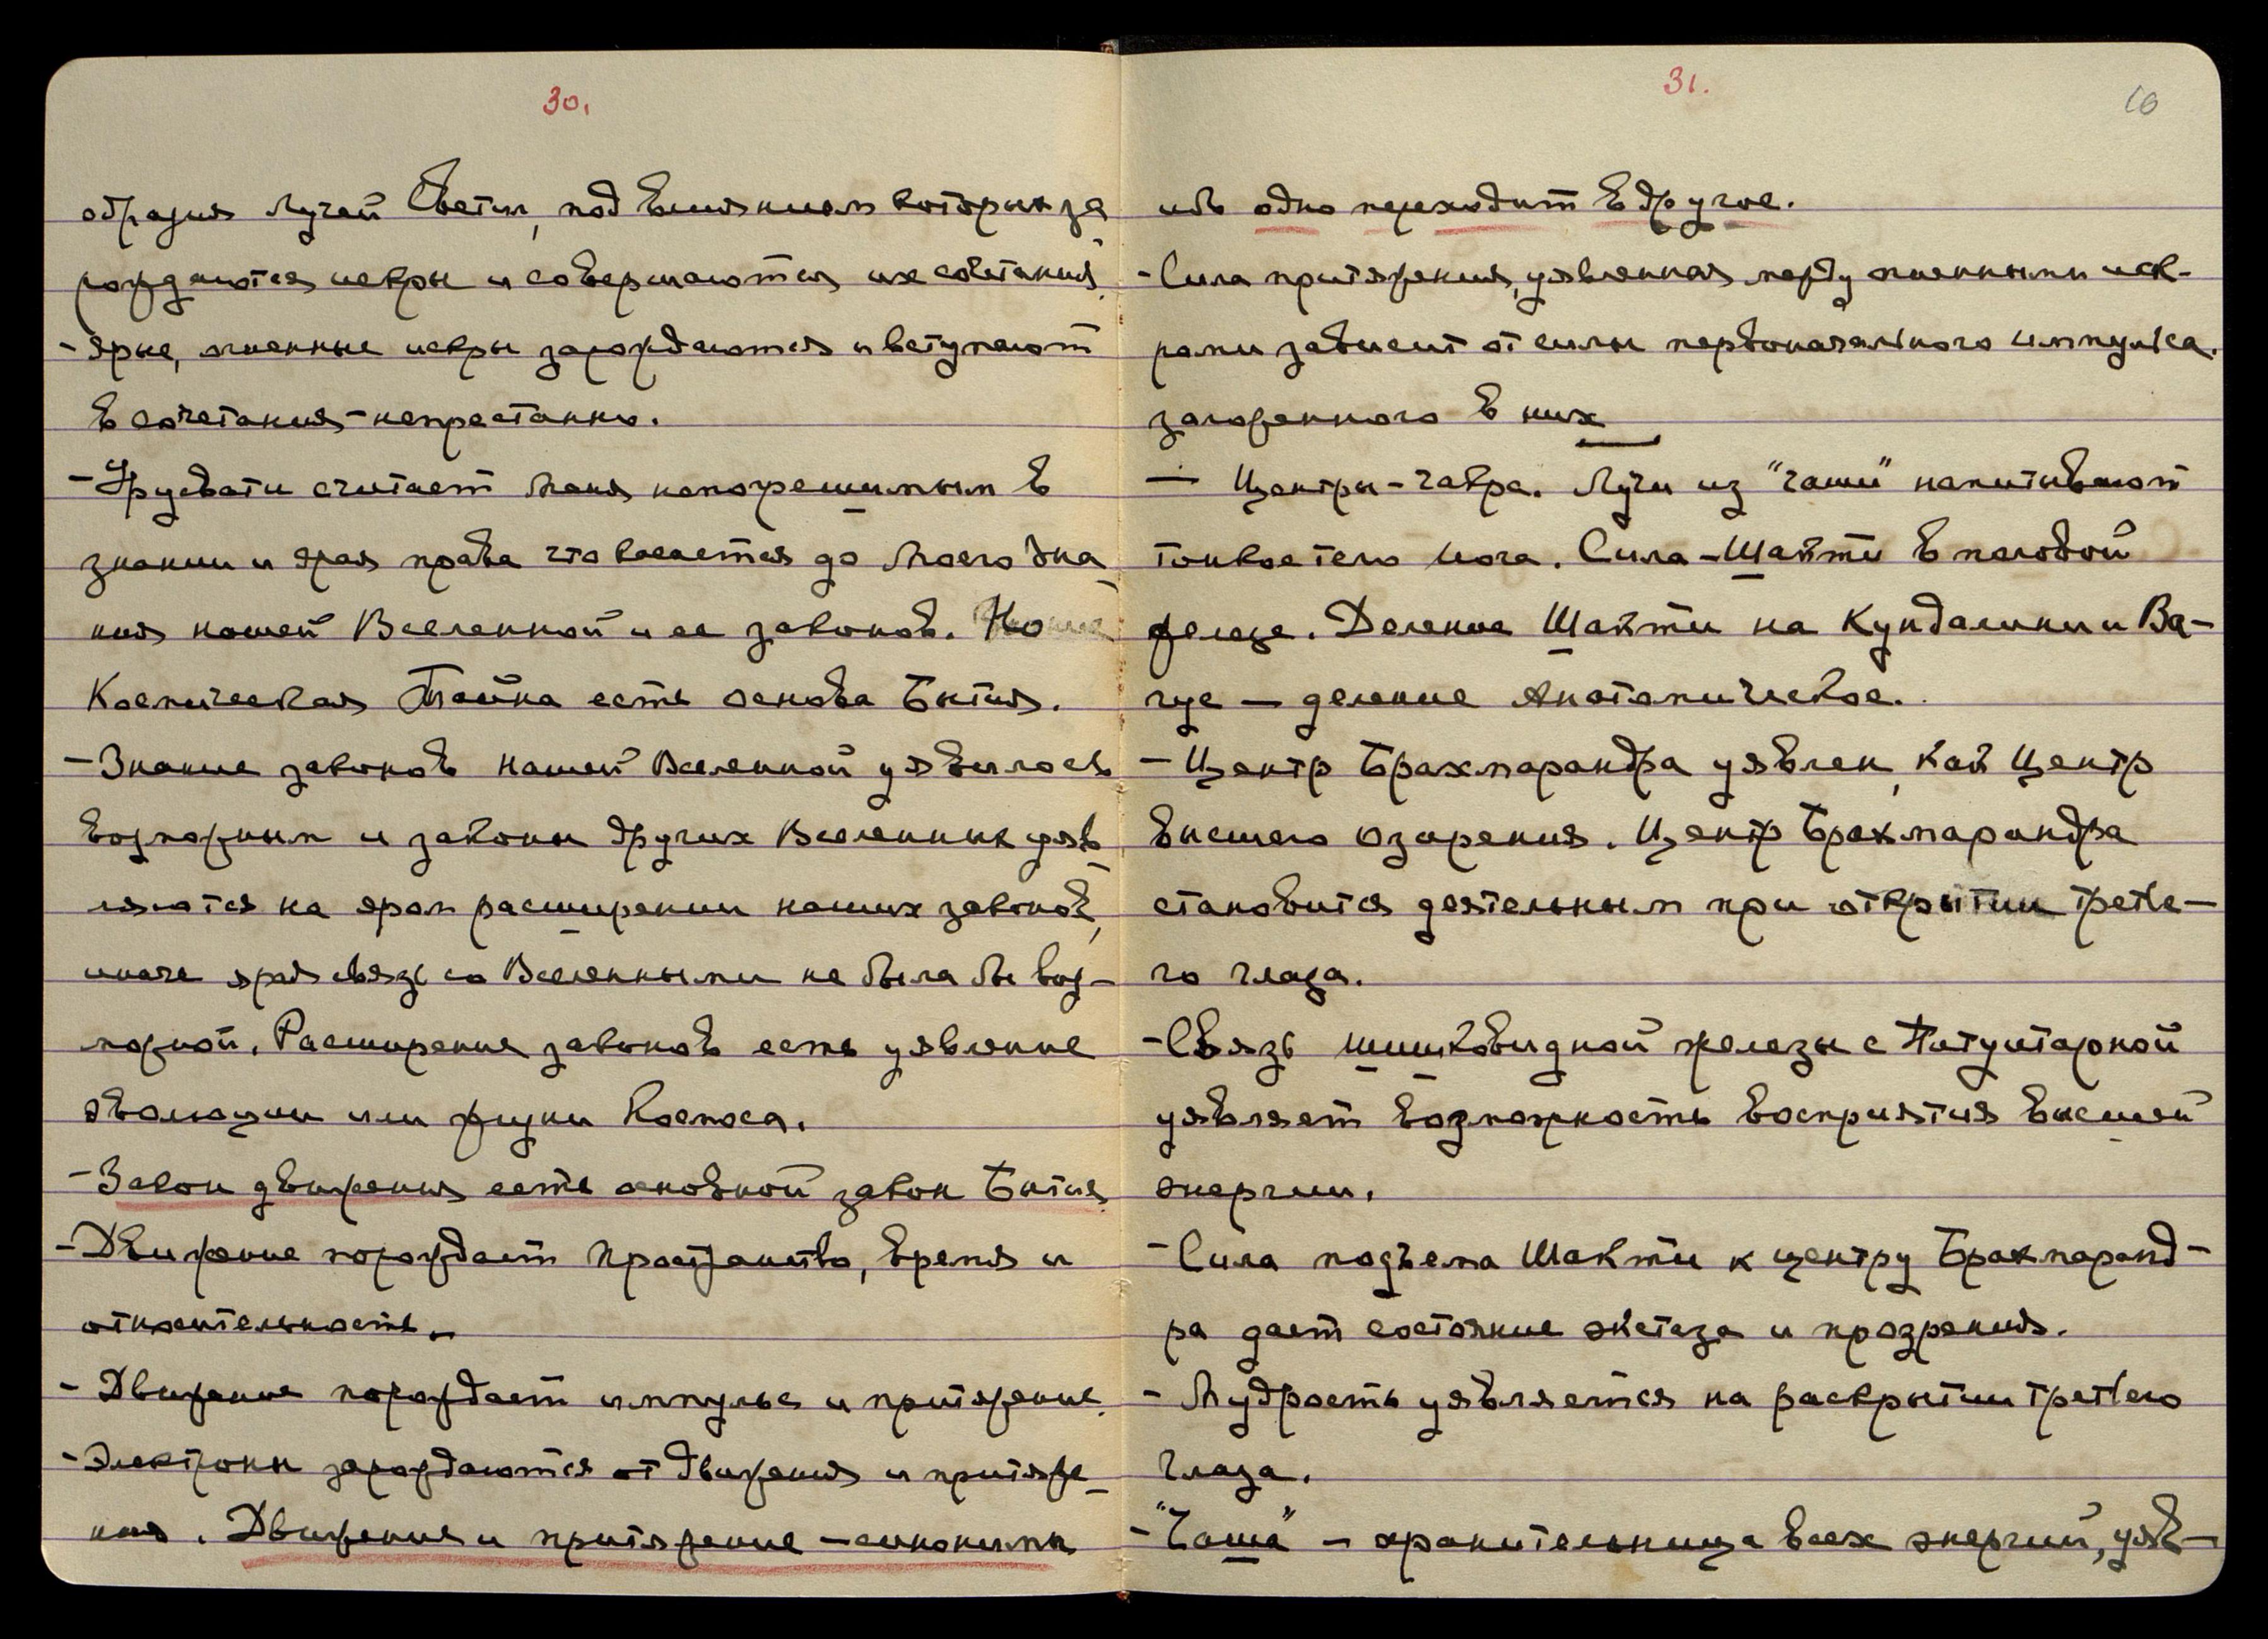 30.
образия Лучей Светил, под влиянием которых за
рождаются искры и совершаются их сочетания.
- Ярые, огненные искры зарождаются и вступают
в сочетания - непрестанно.
- Урусвати считает Меня непогрешимым в
знании и ярая права что касается до Моего Зна-
ния нашей Вселенной и ее законов. Но
Космическая Тайна есть основа Бытия.
- Знание законов нашей Вселенной уявилось
возможным и законы других Вселенных уяв-
ляются на яром расширении наших законов,
иначе ярая связь со Вселенными не была бы воз-
можной. Расширение законов есть уявление
эволюции или жизни Космоса.
- Закон движения есть основной закон Бытия.
- Движение порождает Пространство, время и
относительность.
- Движение порождает импульс и притяжение.
- Электроны зарождаются от движения и притяже-
ния. Движение и притяжение - синонимы
31.
16
ибо одно переходит в другое.
- Сила притяжения, уявленная между огненными иск-
рами зависит от силы первоначального импульса.
заложенного в них
- Центры - чакра. Лучи из "чаши" напитывают
тонкое тело Йога. Сила - Шакти в половой
железе. Деление Шакти на Кундалини и Ва-
гус - деление Анатомическое.
- Центр Брахмарандра уявлен, как Центр
высшего озарения. Центр Брахмарандра
становится деятельным при открытии третье-
го глаза.
- Связь шишковидной железы с Питуитарной
уявляет возможность восприятия высшей
энергии.
- Сила подъема Шакти к центру Брахмаранд-
ра дает состояние экстаза и прозрения.
- Мудрость уявляется на раскрытии третьего
глаза.
- "Чаша" - хранительница всех энергий, уяв-